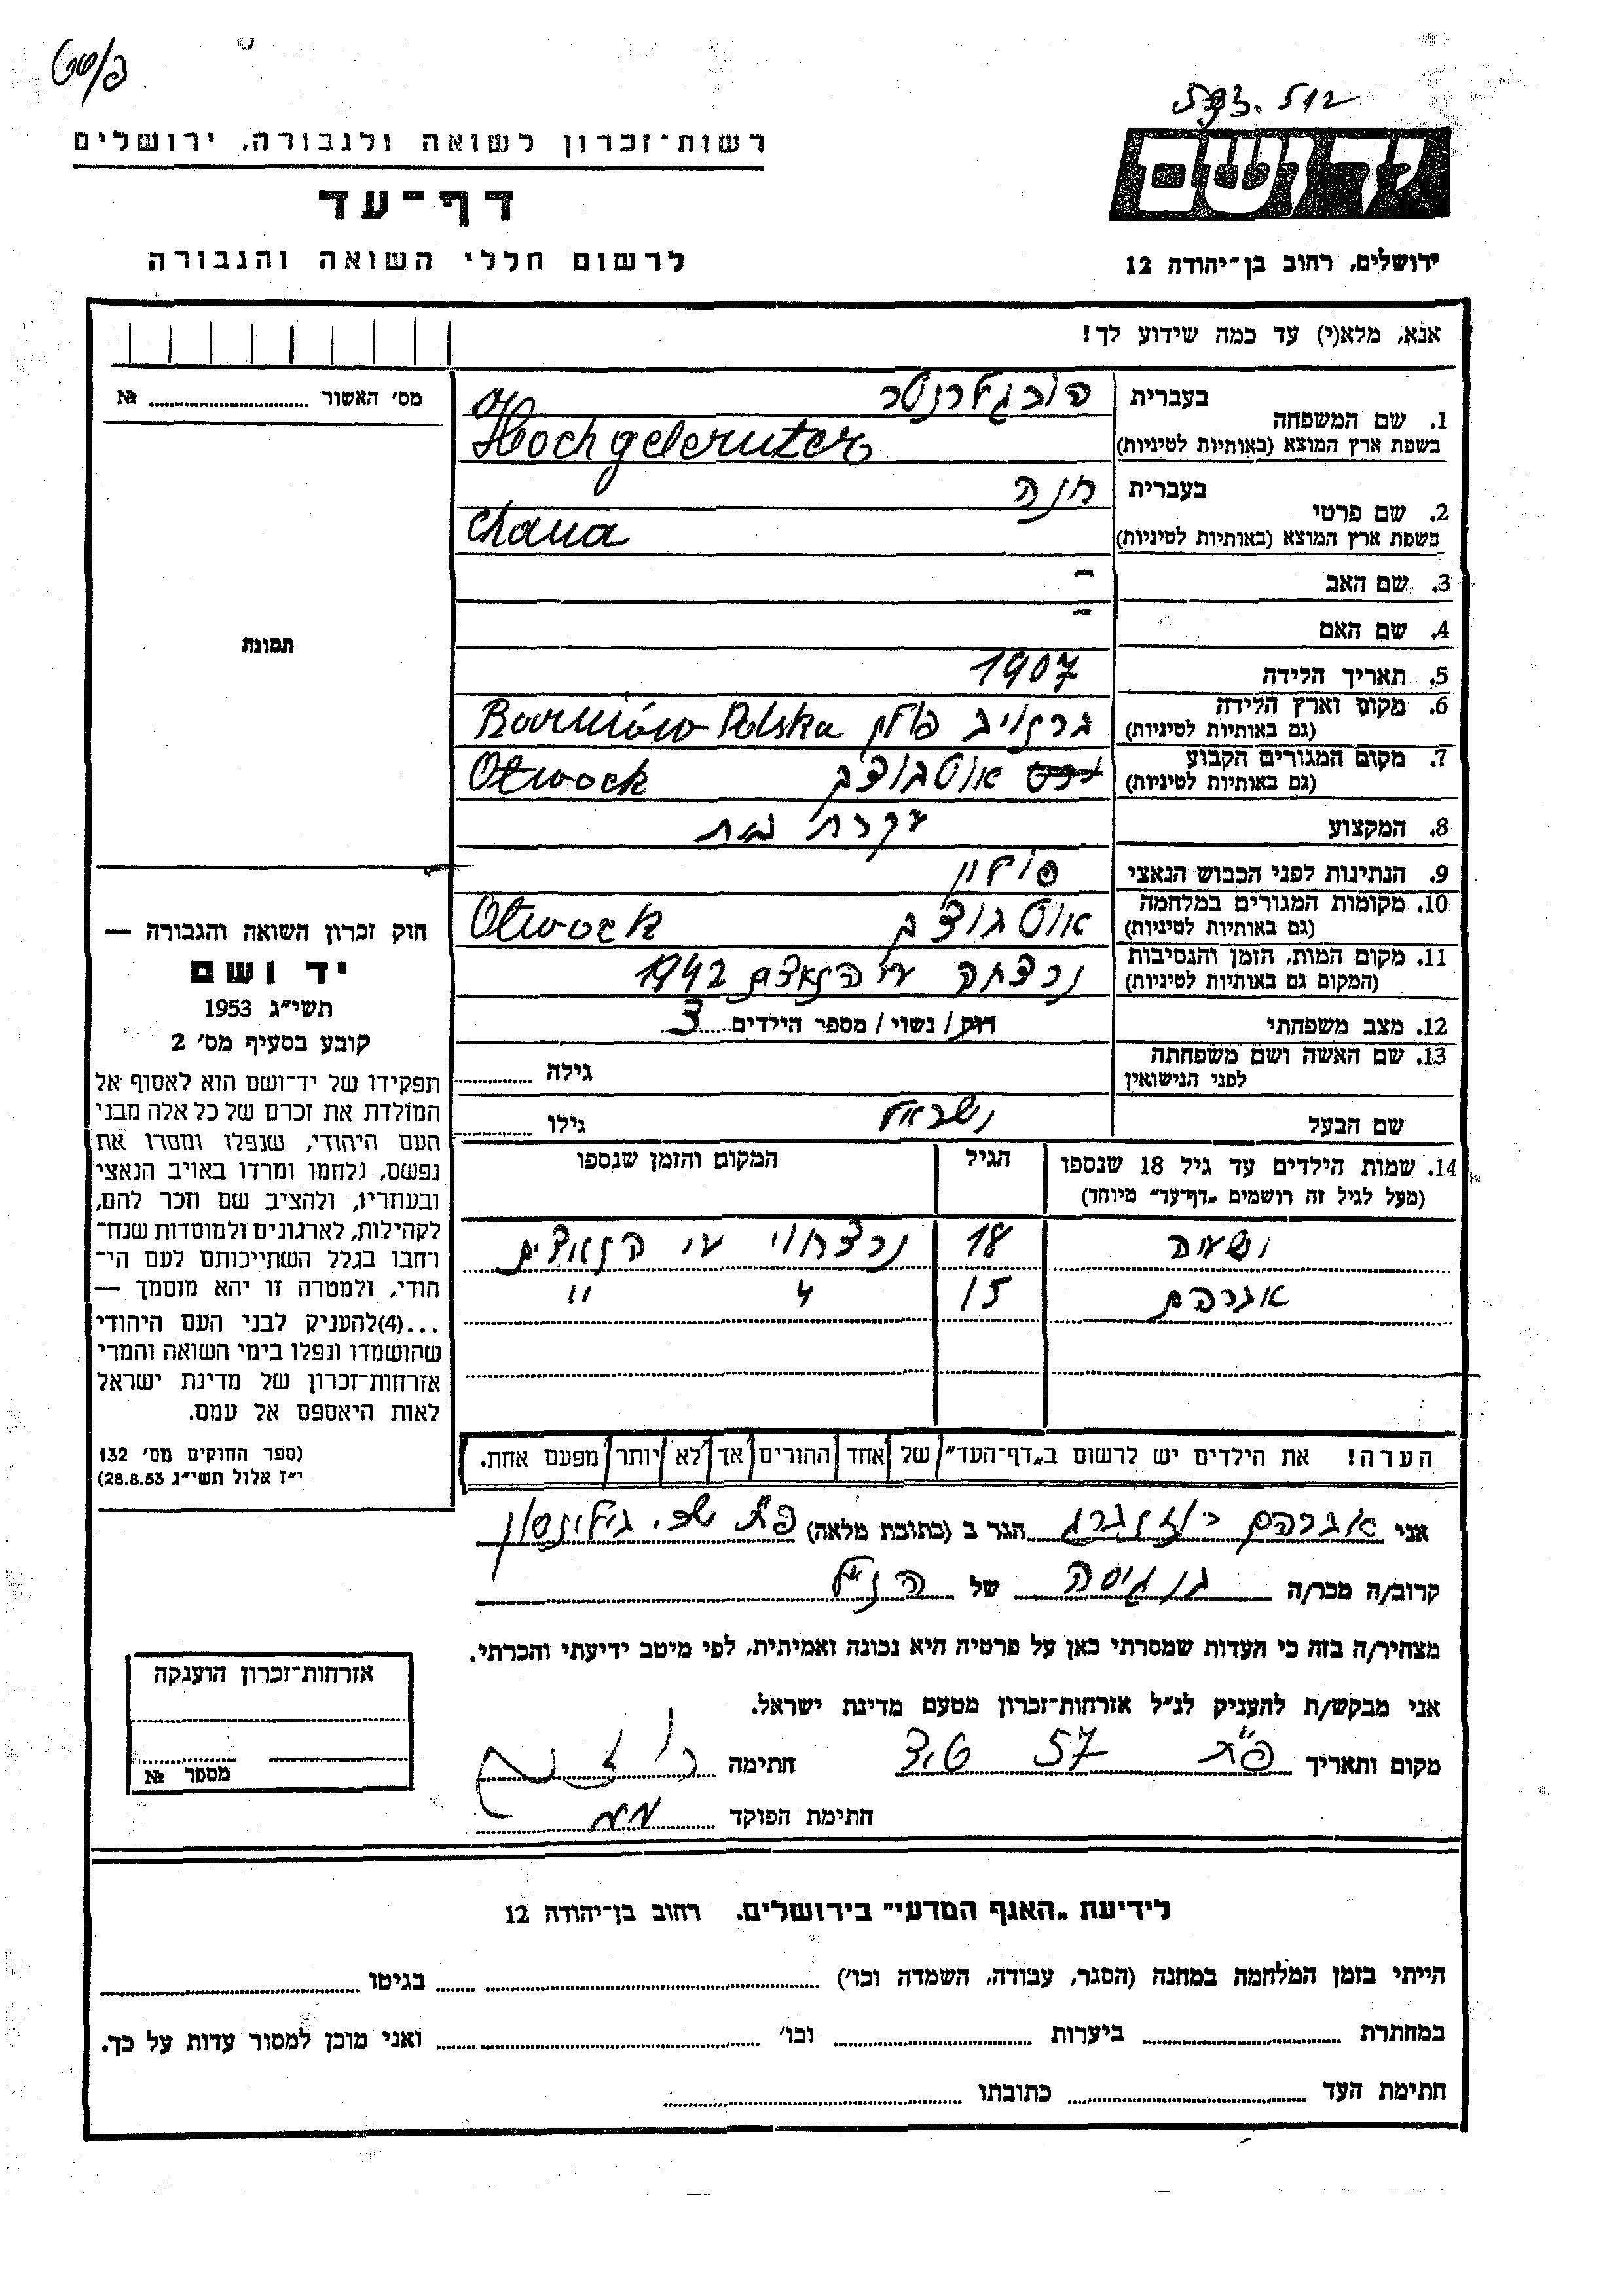 593.512
יד ושם
רשות־זכרון לשואה ולגבורה, ירושלים
דף־עד
לרשום חללי השואה והגבורה
ירושלים, רחוב בן־יהודה 12
אנא, מלא(י) עד כמה שידוע לך!
מס' האשור № 
1. שם המשפחה
בעברית
בשפת ארץ המוצא (באותיות לטיניות) Hochgelernter
2. שם פרטי
בעברית חנה
בשפת ארץ המוצא (באותיות לטיניות) Chana
3. שם האב -
4. שם האם -
5. תאריך הלידה 1907
6. מקום וארץ הלידה
(גם באותיות לטיניות) פולין Polska
7. מקום המגורים הקבוע
(גם באותיות לטיניות) אוטבוצק Otwock
8. המקצוע עקרת בית
9. הנתינות לפני הכבוש הנאצי פולין
10. מקומות המגורים במלחמה
(גם באותיות לטיניות) אוטבוצק Otwock
11. מקום המות, הזמן והנסיבות
(המקום גם באותיות לטיניות) נרצחה ע"י הנאצים 1942
12. מצב משפחתי רווק / נשוי / מספר הילדים 3
13. שם האשה ושם משפחתה
לפני הנישואין גילה
שם הבעל ישראל גילו
14. שמות הילדים עד גיל 18 שנספו הגיל המקום והזמן שנספו
(מעל לגיל זה רושמים „דף־עד" מיוחד)
ישעיה 18 נרצחו ע"י הנאצים
אברהם 15 " "
הערה! את הילדים יש לרשום ב„דף־העד" של אחד ההורים אך לא יותר מפעם אחת.
תמונה
חוק זכרון השואה והגבורה —
יד ושם
תשי"ג 1953
קובע בסעיף מס' 2
תפקידו של יד־ושם הוא לאסוף אל
המולדת את זכרם של כל אלה מבני
העם היהודי, שנפלו ומסרו את
נפשם, נלחמו ומרדו באויב הנאצי
ובעוזריו, ולהציב שם וזכר להם,
לקהילות, לארגונים ולמוסדות שנח־
רחבו בגלל השתייכותם לעם הי־
הודי, ולמטרה זו יהא מוסמך —
...(4)להעניק לבני העם היהודי
שהושמדו ונפלו בימי השואה והמרי
אזרחות־זכרון של מדינת ישראל
לאות היאספם אל עמם.
(ספר החוקים מס' 132
י"ז אלול תשי"ג 28.8.53)
אני אברהם רוזנברג הגר ב (כתובת מלאה) פ"ת
קרוב/ה מכר/ה בן גיסה של הנ"ל
מצהיר/ה בזה כי העדות שמסרתי כאן על פרטיה היא נכונה ואמיתית, לפי מיטב ידיעתי והכרתי.
אני מבקש/ת להעניק לנ"ל אזרחות־זכרון מטעם מדינת ישראל.
מקום ותאריך פ"ת 57 חתימה
חתימת הפוקד
אזרחות־זכרון הוענקה
מספר №
לידיעת „האגף המדעי" בירושלים, רחוב בן־יהודה 12
הייתי בזמן המלחמה במחנה (הסגר, עבודה, השמדה וכו') בגיטו
במחתרת ביערות וכו' ואני מוכן למסור עדות על כך.
חתימת העד כתובתו